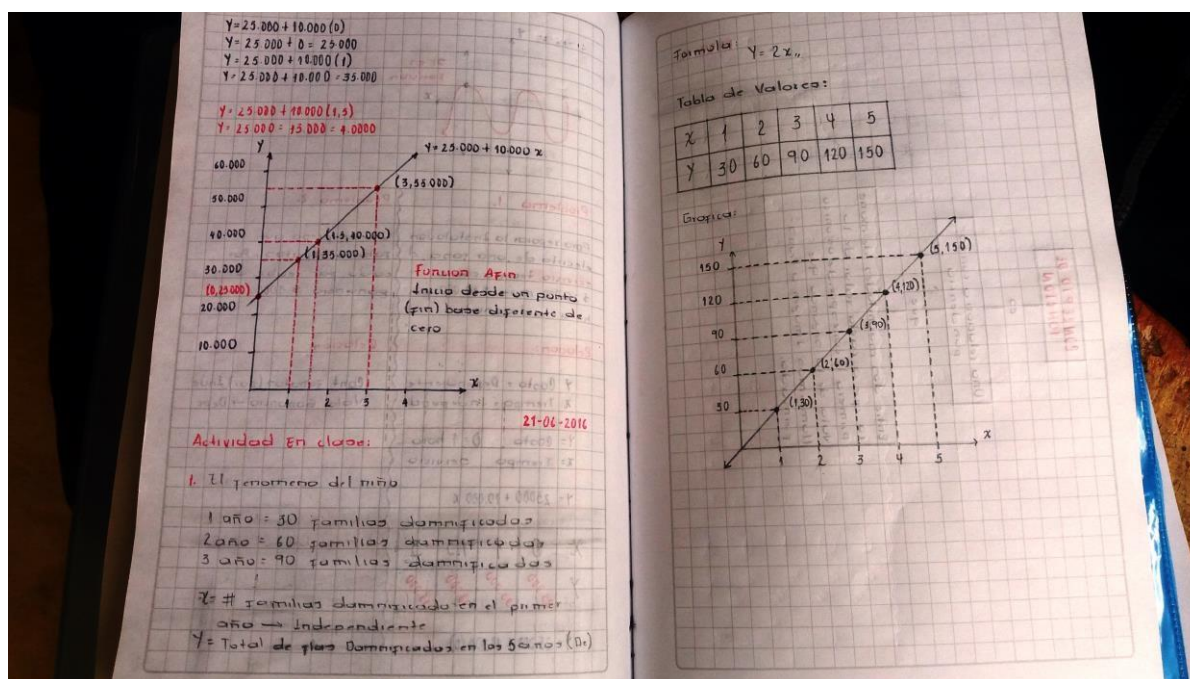 Y=25.000+10.000(0)
Y=25.000+0=25.000
Y=25.000+10.000(1)
Y=25.000+10.000=35.000
Y=25.000+10.000(1,5)
Y=25.000=15.000=4.0000
Y
Y=25.000+10.000x
60.000
(3,55.000)
50.000
40.000
(1.5,40.000)
(1,35.000)
30.000
(0,25.000)
20.000
10.000
x
1 2 3 4
Funcion Afin
Inicio desde un punto
(fin) base diferente de
cero
21-06-2016
Actividad En clase:
1. El fenomeno del niño
1 año = 30 familias damnificadas
2 año = 60 familias damnificadas
3 año = 90 familias damnificadas
x= # familias damnificado en el primer
año → Independiente
Y= Total de Damnificados en los 5 años
Formula: Y=2x
Tabla de Valores:
x 1 2 3 4 5
Y 30 60 90 120 150
Grafica:
Y
150 (5,150)
120 (4,120)
90 (3,90)
60 (2,60)
30 (1,30)
x
1 2 3 4 5